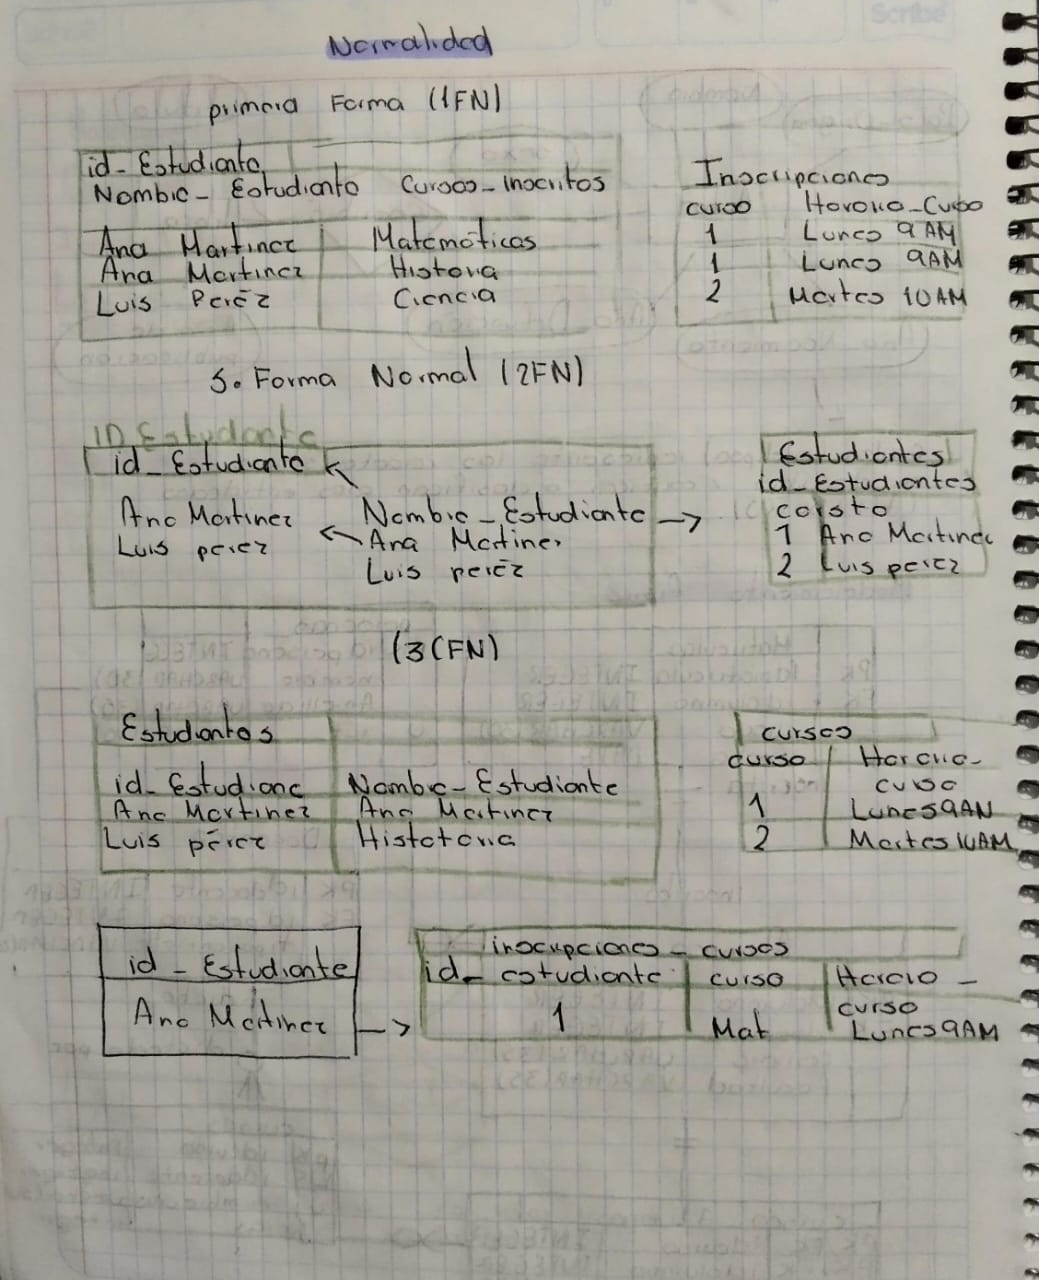 Normalidad
primera Forma (1FN)
id_Estudiante
Nombre_Estudiante Cursos_Inscritos
Ana Martinez Matemáticas
Ana Martinez Historia
Luis Peréz Ciencia
Inscripciones
curso Horario_Curso
1 Lunes 9 AM
1 Lunes 9AM
2 Martes 10AM
S. Forma Normal (2FN)
ID Estudiante
id_Estudiante
Ana Martinez
Luis perez
Nombre_Estudiante
Ana Martinez
Luis peréz
Estudiantes
id_Estudiantes
1 Ana Martinez
2 Luis perez
(3(FN)
Estudiantes
id_Estudiane Nombre_Estudiante
Ana Martinez Ana Martinez
Luis pérez Histotoria
cursos
curso Horario-
curso
1 Lunes9AM
2 Martes10AM
id_Estudiante
Ana Martinez
inscripciones_cursos
id_estudiante curso Horario_
curso
1 Mat Lunes9AM